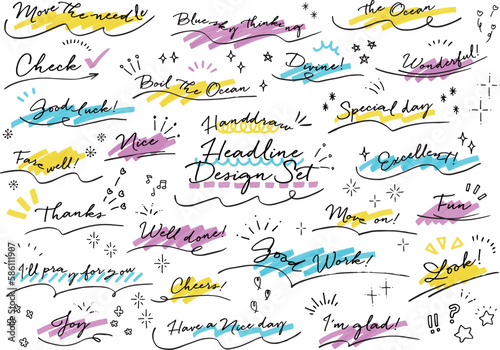 Move the needle
Blue sky thinking
The Ocean
Check
Divine!
Wonderful!
Boil the Ocean
Good luck!
Special day
Handdraw
Headline
Design Set
Nice
Farewell!
Excellent!
Thanks
Fun
Move on!
Well done!
Good Work!
I'll pray for you
Cheers!
Look!
Joy
Have a Nice day
I'm glad!
!! ?
Adobe Stock | #586111907